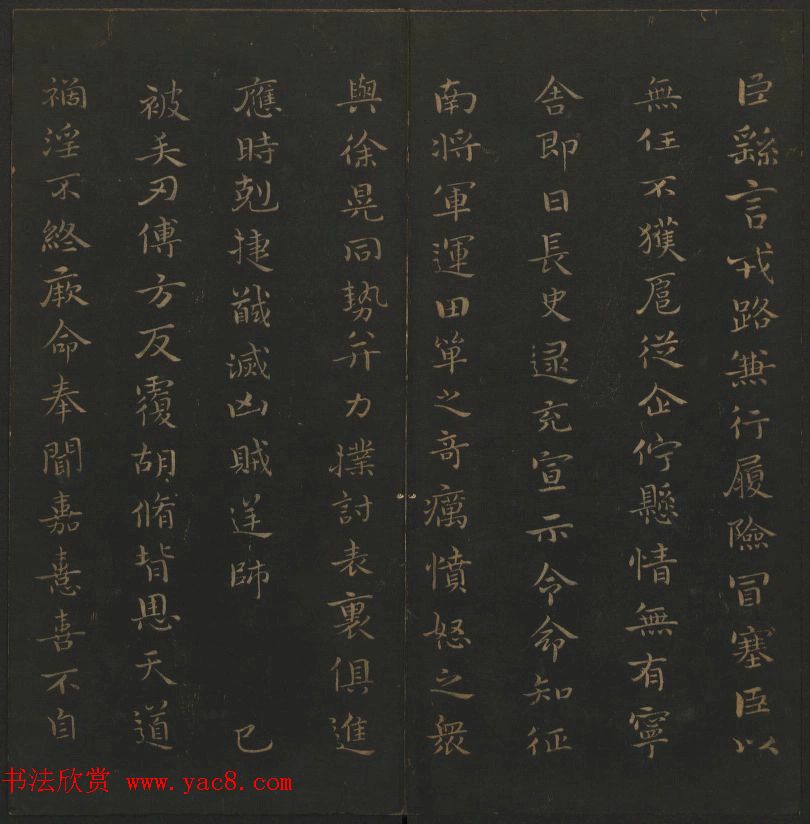 臣繇言戎路兼行履險冒塞臣以
無任不獲扈從企佇懸情無有寧
舍即日長史逯充宣示令命知征
南將軍運田單之奇癘憤怒之衆
與徐晃同勢并力撲討表裏俱進
應時剋捷馘滅凶賊逆帥 已
被矢刃傅方反覆胡脩背恩天道
禍淫不終厥命奉聞嘉憙喜不自
书法欣赏 www.yac8.com